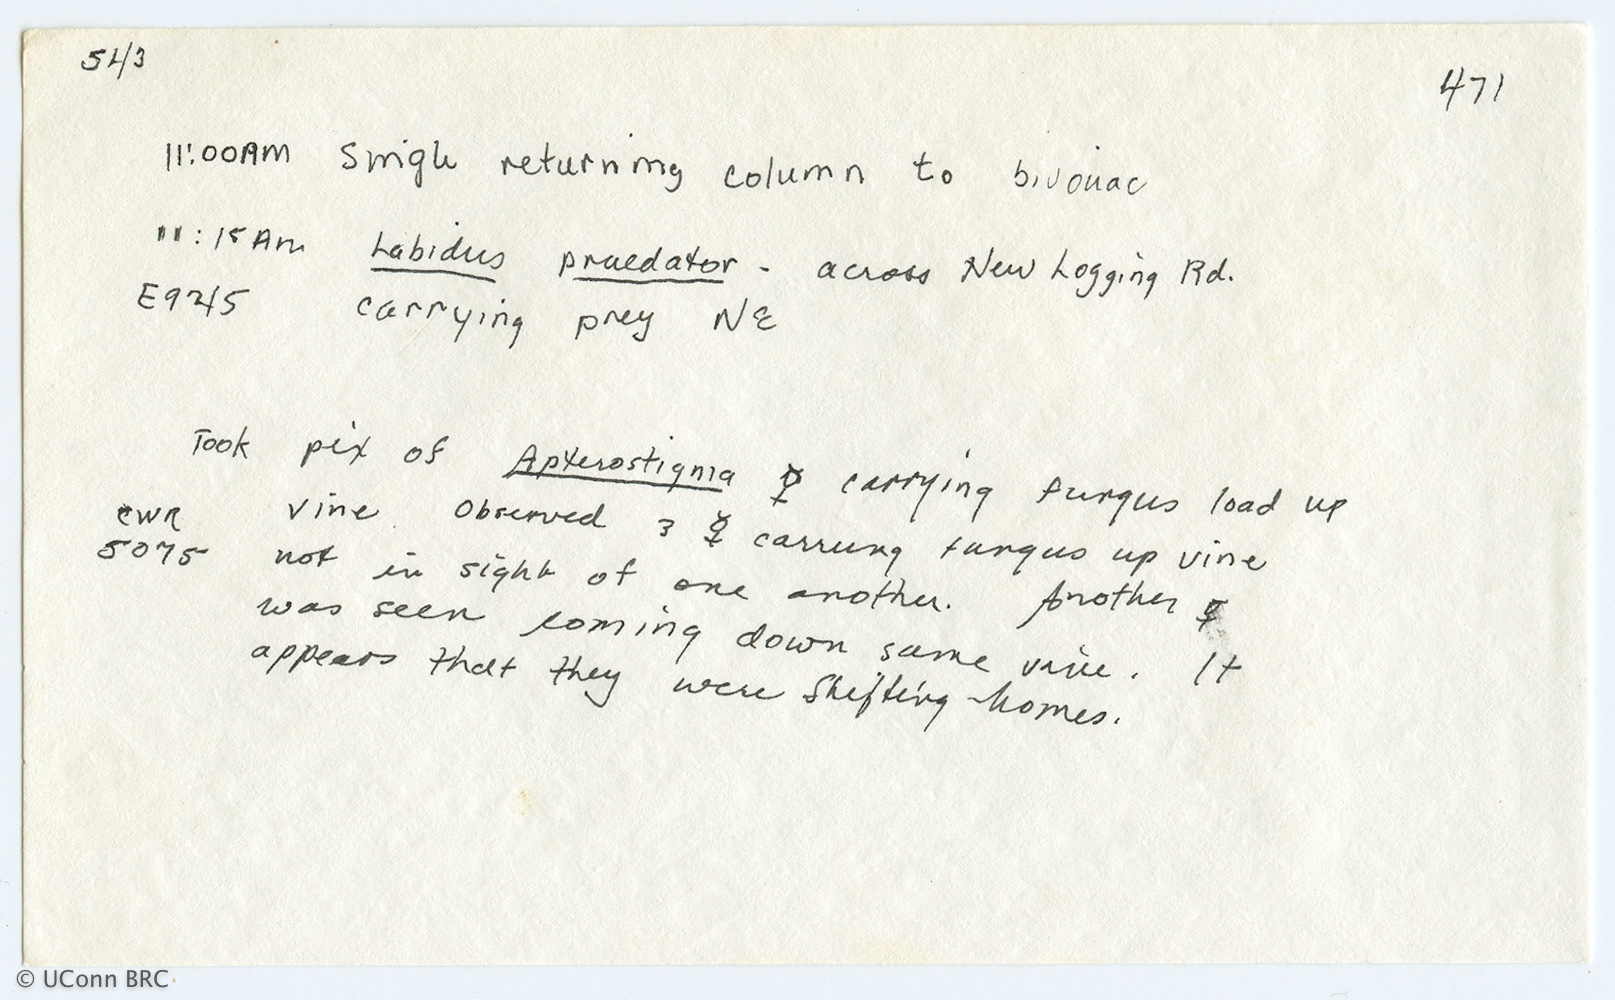 5L/3
471
11:00AM Single returning column to bivouac
11:15AM Labidus praedator - across New Logging Rd.
E9245 carrying prey NE
Took pix of Apterostigma ☿ carrying fungus load up
CWR vine. Observed 3 ☿ carrung fungus up vine
5075 not in sight of one another. Another ☿
was seen coming down same vine. It
appears that they were shifting homes.
© UConn BRC